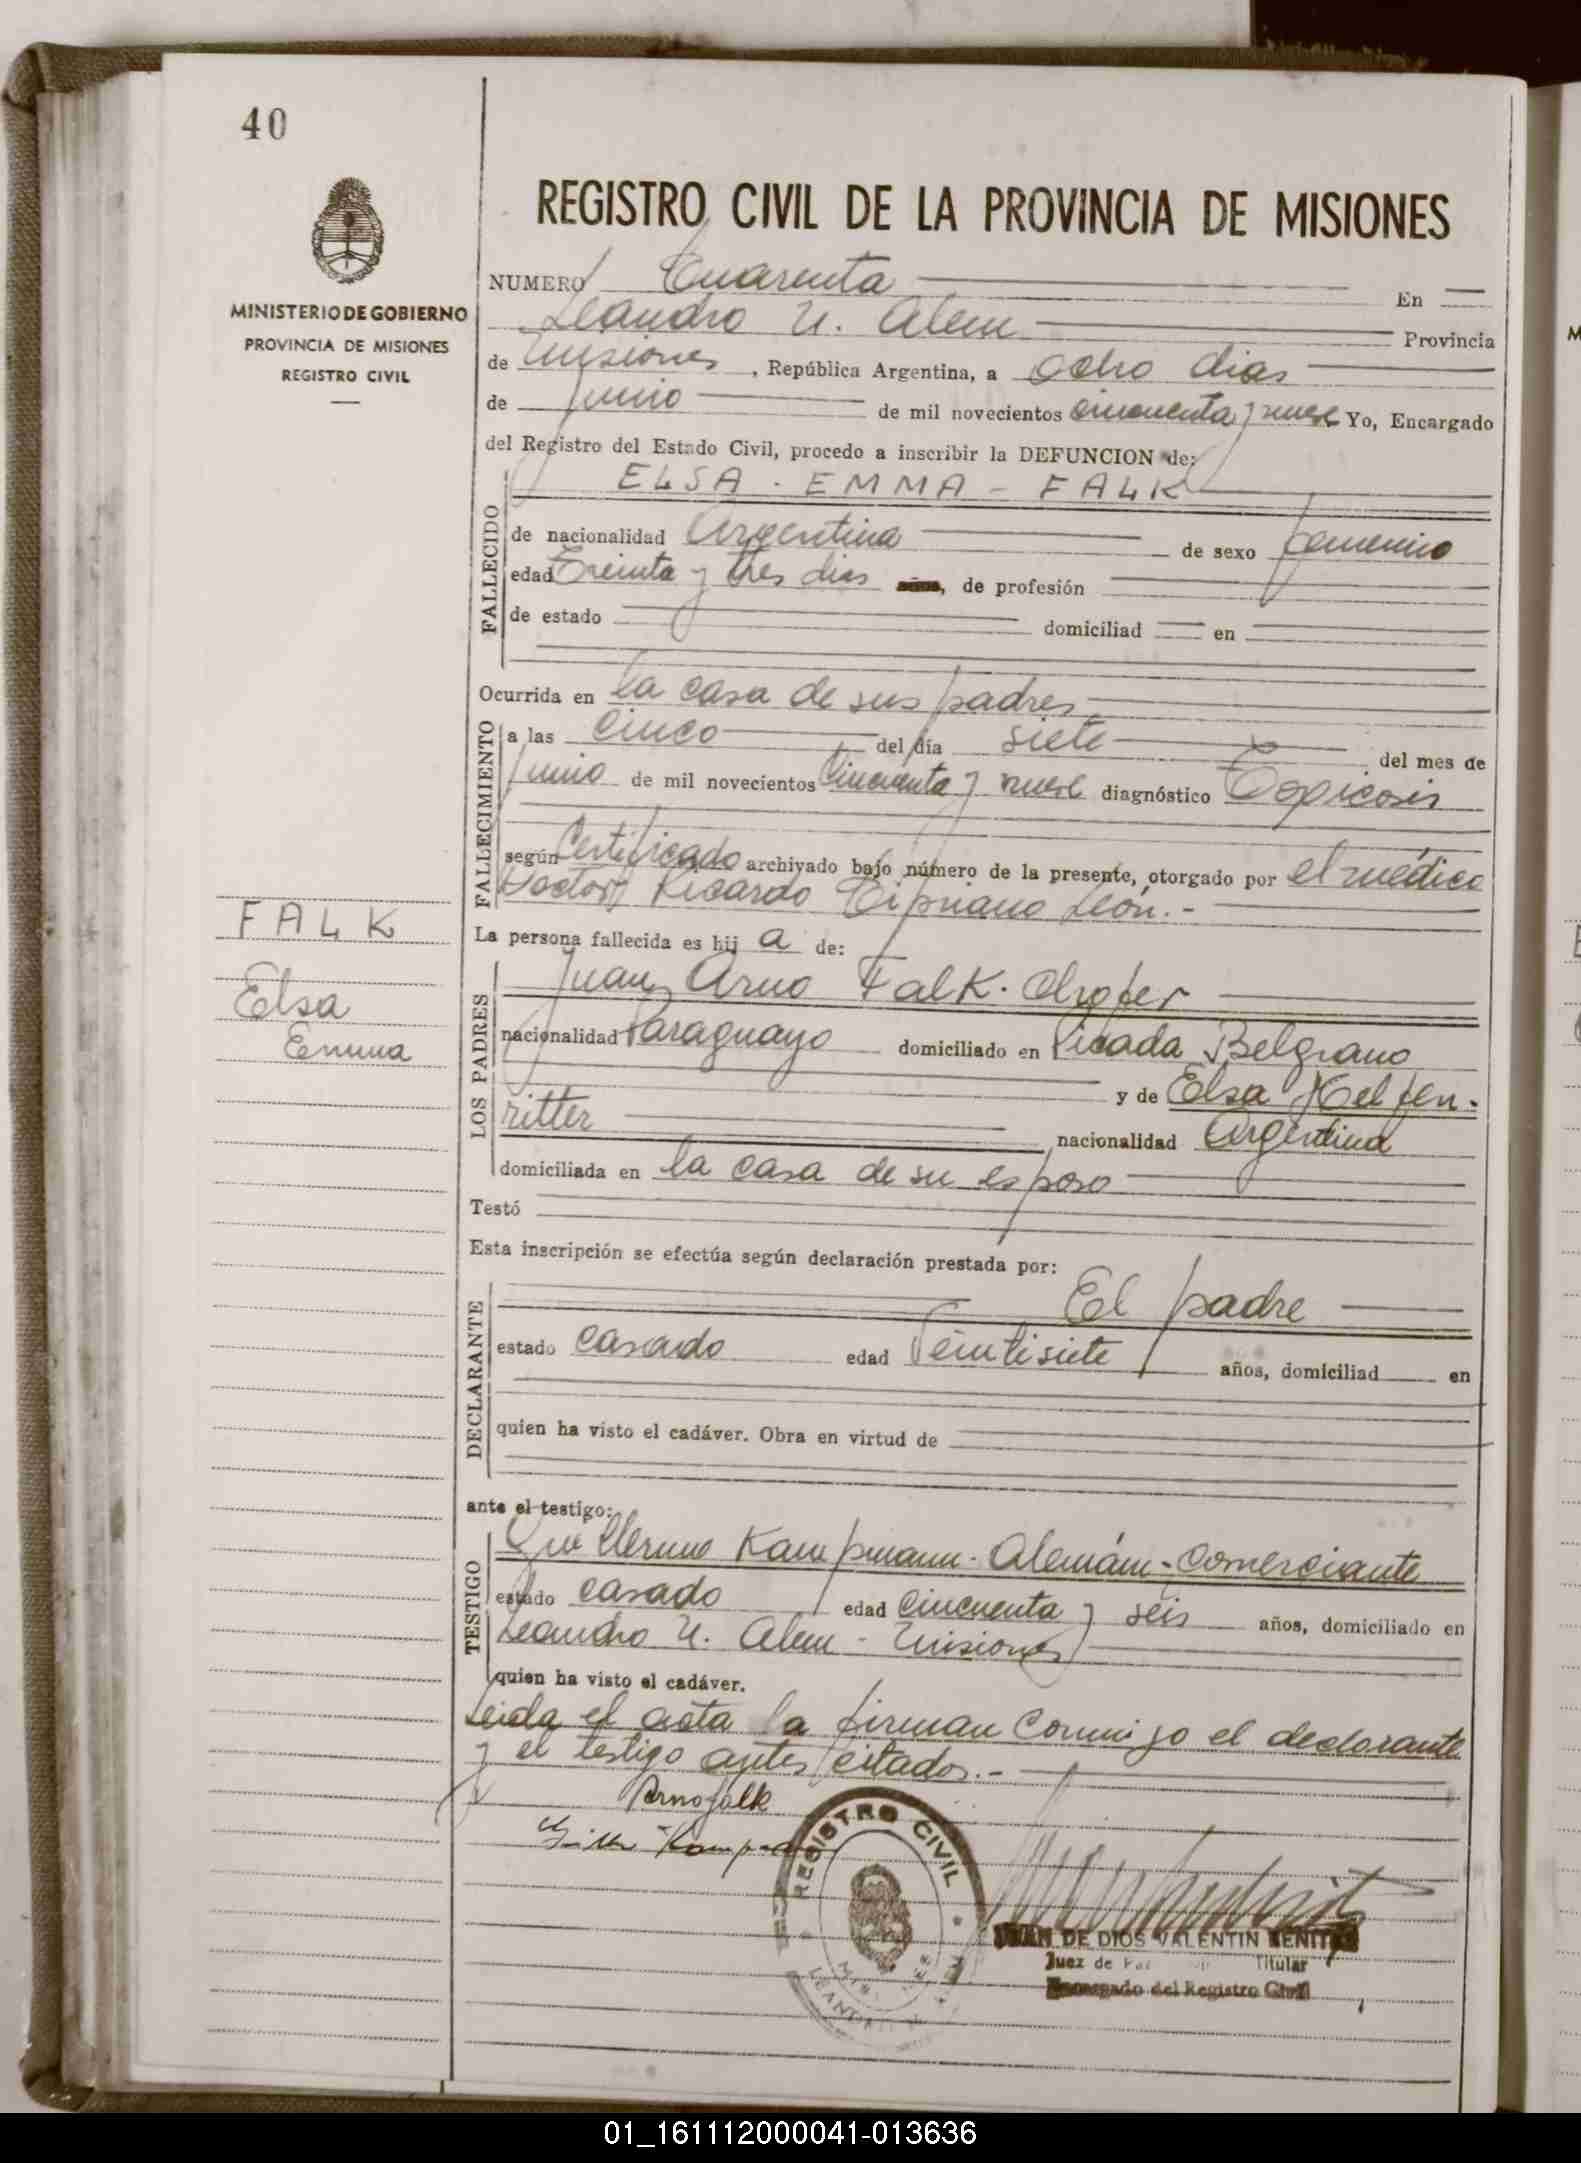 40
REGISTRO CIVIL DE LA PROVINCIA DE MISIONES
MINISTERIO DE GOBIERNO
PROVINCIA DE MISIONES
REGISTRO CIVIL
NUMERO Cuarenta En
Leandro N. Alem Provincia
de Misiones, República Argentina, a ocho dias
de Junio de mil novecientos cincuenta y nueve Yo, Encargado
del Registro del Estado Civil, procedo a inscribir la DEFUNCION de:
ELSA - EMMA - FALK
FALLECIDO
de nacionalidad Argentina de sexo femenino
edad Treinta y tres dias años, de profesión
de estado domiciliad en
Ocurrida en la casa de sus padres
FALLECIMIENTO
a las cinco del día siete del mes de
Junio de mil novecientos cincuenta y nueve diagnóstico
según Certificado archivado bajo número de la presente, otorgado por el médico
Doctor Ricardo Cipriano León.-
FALK
Elsa
Emma
La persona fallecida es hij a de:
LOS PADRES
Juan Arno Falk. Chofer
nacionalidad Paraguayo domiciliado en Picada Belgrano
y de Elsa Helfen-
ritter
nacionalidad Argentina
domiciliada en la casa de su esposo
Testó
Esta inscripción se efectúa según declaración prestada por:
DECLARANTE
El padre
estado casado edad Veintisiete años, domiciliad en
quien ha visto el cadáver. Obra en virtud de
ante el testigo:
TESTIGO
Guillermo Kampmann - Alemán - Comerciante
estado casado edad cincuenta y seis años, domiciliado en
Leandro N. Alem - Misiones
quien ha visto el cadáver.
Leida el acta la firman conmigo el declarante
y el testigo antes citados.-
Arno Falk
REGISTRO CIVIL
JUAN DE DIOS VALENTIN BENITEZ
Juez de Titular
Encargado del Registro Civil
01_161112000041-013636